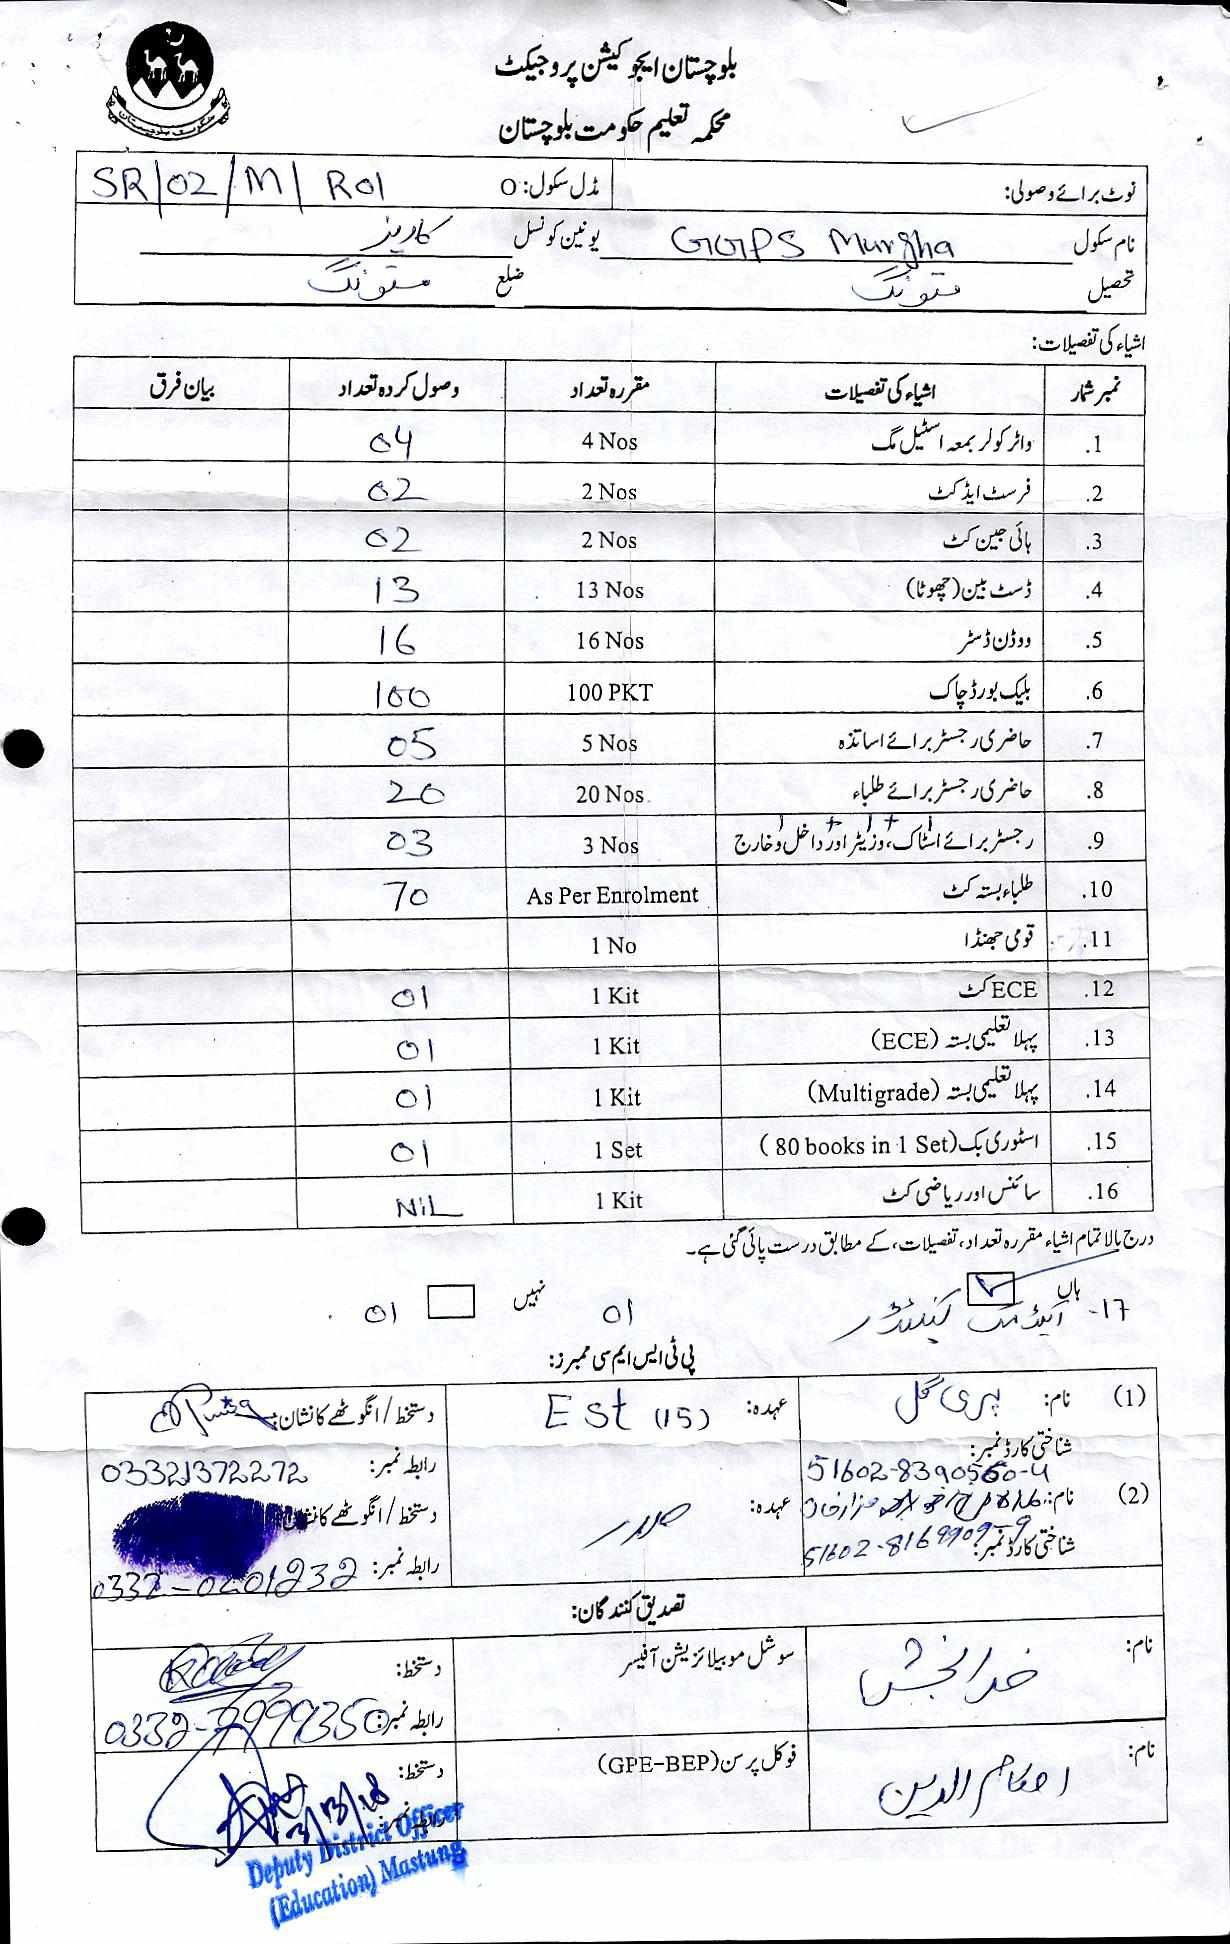 حکومت بلوچستان
بلوچستان ایجوکیشن پروجیکٹ
محکمہ تعلیم حکومت بلوچستان
نوٹ برائے وصولی: مڈل سکول: O SR/02/M/R01
نام سکول GGPS Murgha یونین کونسل کاریز
تحصیل مستونگ ضلع مستونگ
اشیاء کی تفصیلات:
نمبر شمار اشیاء کی تفصیلات مقررہ تعداد وصول کردہ تعداد بیان فرق
.1 واٹر کولر بمعہ اسٹیل مگ 4 Nos 04
.2 فرسٹ ایڈ کٹ 2 Nos 02
.3 ہائی جین کٹ 2 Nos 02
.4 ڈسٹ بین (چھوٹا) 13 Nos 13
.5 ووڈن ڈسٹر 16 Nos 16
.6 بلیک بورڈ چاک 100 PKT 100
.7 حاضری رجسٹر برائے اساتذہ 5 Nos 05
.8 حاضری رجسٹر برائے طلباء 20 Nos 20
.9 رجسٹر برائے اسٹاک، وزیٹر اور داخل و خارج 3 Nos 03
.10 طلباء بستہ کٹ As Per Enrolment 70
.11 قومی جھنڈا 1 No
.12 ECE کٹ 1 Kit 01
.13 پہلا تعلیمی بستہ (ECE) 1 Kit 01
.14 پہلا تعلیمی بستہ (Multigrade) 1 Kit 01
.15 اسٹوری بک (80 books in 1 Set) 1 Set 01
.16 سائنس اور ریاضی کٹ 1 Kit NiL
درج بالا تمام اشیاء مقررہ تعداد، تفصیلات، کے مطابق درست پائی گئی ہے۔
ہاں نہیں
17- کیلنڈر 01 01
پی ٹی ایس ایم سی ممبرز:
(1) نام: پری گل عہدہ: Est (15) دستخط/انگوٹھے کا نشان:
شناختی کارڈ نمبر: 51602-8390560-4 رابطہ نمبر: 03321372272
(2) نام: عہدہ: صدر دستخط/انگوٹھے کا نشان
شناختی کارڈ نمبر: 51602-8169909-9 رابطہ نمبر: 0332-0201232
تصدیق کنندگان:
نام: خدا بخش سوشل موبیلائزیشن آفیسر دستخط:
رابطہ نمبر: 0332-7999350
نام: احکام الدین فوکل پرسن (GPE-BEP) دستخط:
رابطہ نمبر:
Deputy District Officer
(Education) Mastung